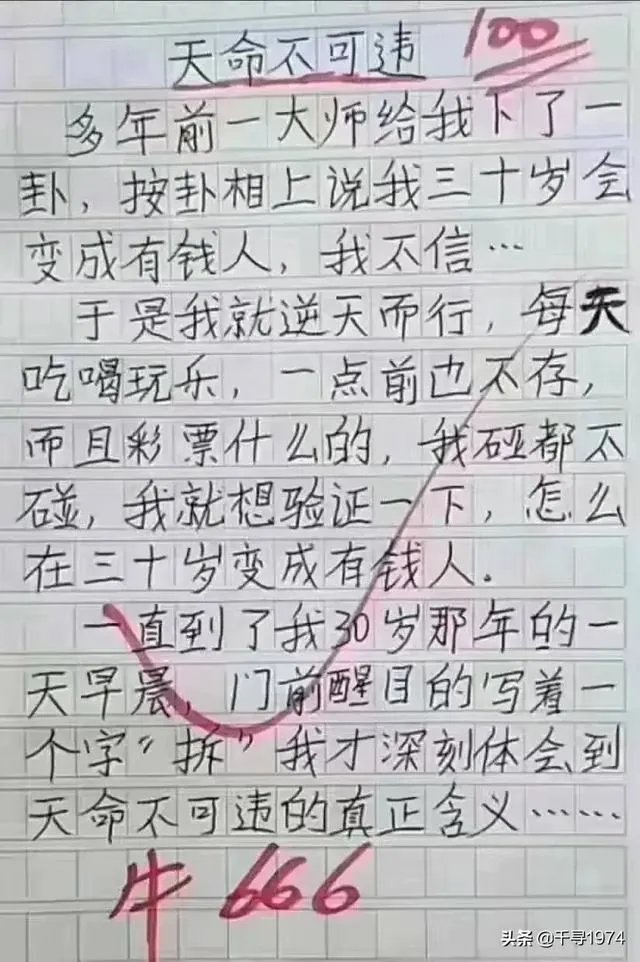 天命不可违 100
多年前一大师给我下了一
卦，按卦相上说我三十岁会
变成有钱人，我不信…
于是我就逆天而行，每天
吃喝玩乐，一点前也不存，
而且彩票什么的，我碰都不
碰，我就想验证一下，怎么
在三十岁变成有钱人.
一直到了我30岁那年的一
天早晨，门前醒目的写着一
个字“拆”我才深刻体会到
天命不可违的真正含义……
牛666
头条 @千寻1974